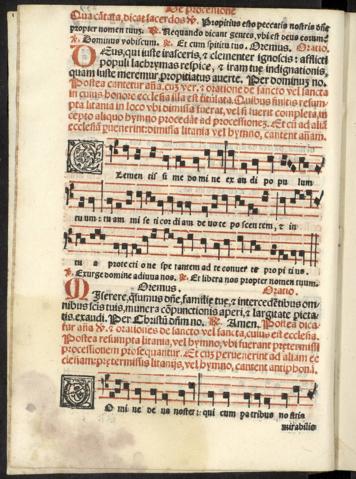 De processione
Qua cātata, dicat sacerdos ℣. Propitius esto peccatis nostris dn̄e
propter nomen tuum. ℟. Nequando dicant gentes, vbi est deus eorum:
℣. Dominus vobiscum. ℟. Et cum spiritu tuo. Oremus. Oratio.
DEus, qui iuste irasceris, & clementer ignoscis: afflicti
populi lachrymas respice, & iram tuę indignationis,
quam iuste meremur, propitiatus auerte. Per dominum no.
Postea cantetur aña, cum ver. & oratione de sancto vel sancta
in cuius honore ecclesia illa est titulata. Quibus finitis resum-
pta litania in loco vbi dimissa fuerat, vel si fuerit completa, in
cepto aliquo hymno procedāt ad processionem. Et cū ad aliā
ecclesiā peruenerint: dimissa litania vel hymno, cantent añam.
Clemen tis si me do mi ne ex au di po pu lum
tu um: tu am mi se ri cor di am de uo te po scen tem, & in
tu a prote cti o ne spe rantem ad te conuer te pro pi ti us.
℣. Exurge domine adiuua nos. ℟. Et libera nos propter nomen tuum.
Oremus. Oratio.
MIserere, q̄sumus dn̄e, familię tuę, & intercedētibus om-
nibus scīs tuis, munera cōpunctionis aperi, & largitate pieta-
tis exaudi. Per Christū dn̄m no. ℟. Amen. Postea dica-
tur aña ℣. & orationes de sancto vel sancta, cuius est ecclesia.
Postea resumpta litania, vel hymno, vbi fuerant prętermissi
processionem prosequantur. Et cum peruenerint ad aliam ec
clesiam: prętermissis litanijs, vel hymno, cantent antiphonā.
Do mi ne de us noster: qui cum patribus no stris
mirabilia